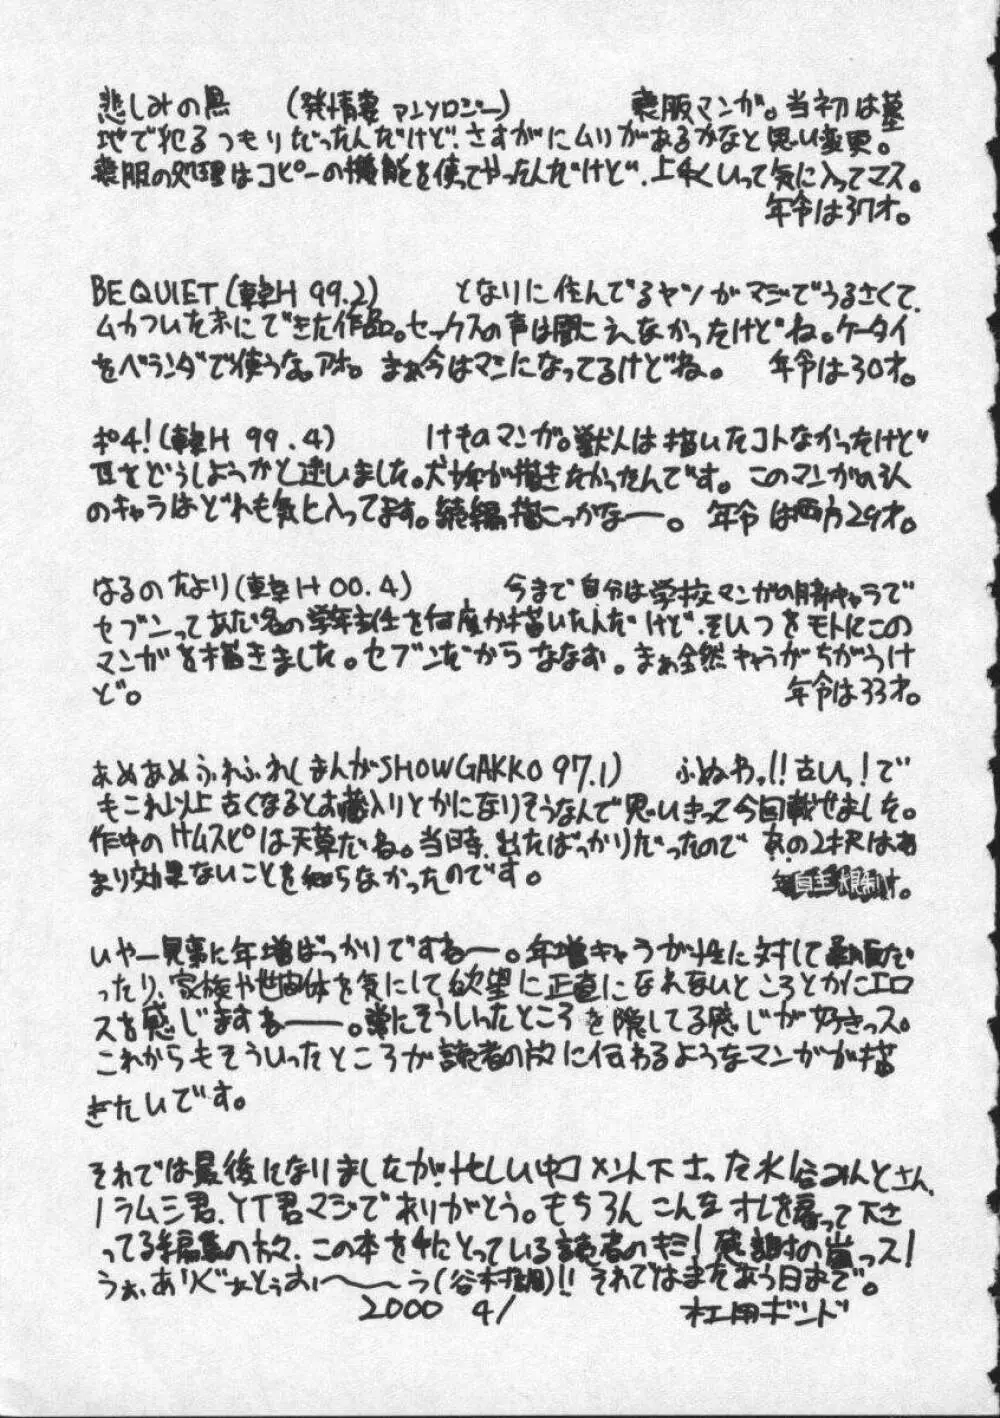 悲しみの黒 (発情妻アンソロジー) 喪服マンガ。当初は墓
地で犯るつもりだったんだけど、さすがにムリがあるかなと思い変更。
喪服の処理はコピーの機能を使ってやったんだけど、上手くいって気に入ってマス。
年令は37才。
BE QUIET (韓H 99.2) となりに住んでるヤツがマジでうるさくて、
ムカついた末にできた作品。セックスの声は聞こえなかったけどね。ケータイ
をベランダで使うな。アホ。まぁ今はマシになってるけどね。 年令は30才。
ポチ! (韓H 99.4) けものマンガ。獣人は描いたコトなかったけど
耳をどうしようかと迷いました。犬が描きたかったんです。このマンガの3人
のキャラはどれも気に入ってます。続編描こっかなー。年令は両方29才。
はるのたより (韓H 00.4) 今まで自分は学校マンガの脇キャラで
セブンってあだ名の学年主任を何度か描いたんだけど、そいつをモトにこの
マンガを描きました。セブンだからななお。まぁ全然キャラがちがうけ
ど。 年令は33才。
あめあめふれふれ (まんがSHOWGAKKO 97.1) ふぬわっ!!古いっ!で
もこれ以上古くなるとお蔵入りとかになりそうなんで思いきって今回載せました。
作中のサムスピは天草だね。当時、出たばっかりだったので あの2択はあ
まり効果ないことを知らなかったのです。 自主規制
いやー見事に年増ばっかりですねー。年増キャラが性に対して
ったり、家族や世間体を気にして欲望に正直になれないところとかにエロ
スを感じますねー。常にそういったところを隠してる感じが好きっス。
これからもそういったところが読者の方に伝わるようなマンガが描
きたいです。
それでは最後になりましたが、忙しい中コメント下さった水谷みんとさん、
ラムシ君、YT君マジでありがとう。もちろんこんなオレを養って下さ
ってる編集の方々、この本を手にとっている読者のキミ!感謝の嵐っス!
うぉ、ありぐぁとぅおぉ〜う(谷村)!! それではまたあう日まで。
2000 4/ 杠用ボンド